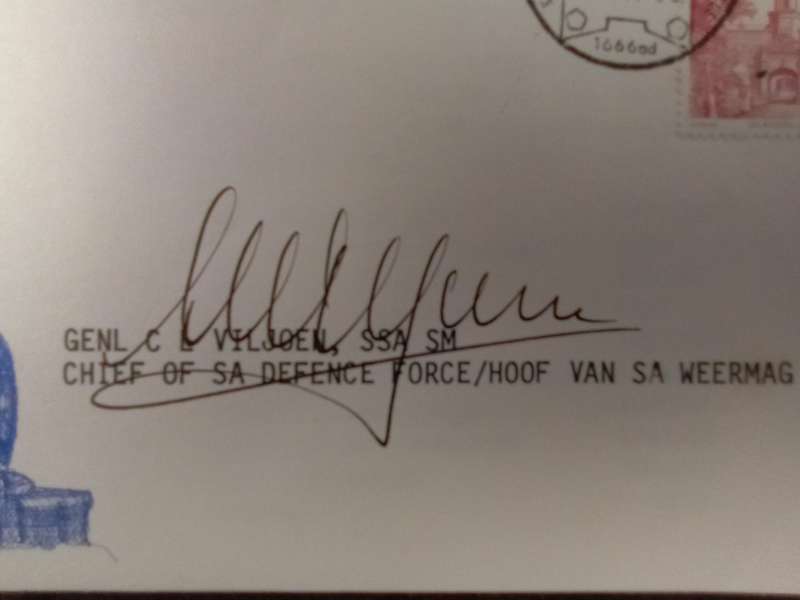 1666ad
GENL C L VILJOEN, SSA SM
CHIEF OF SA DEFENCE FORCE/HOOF VAN SA WEERMAG